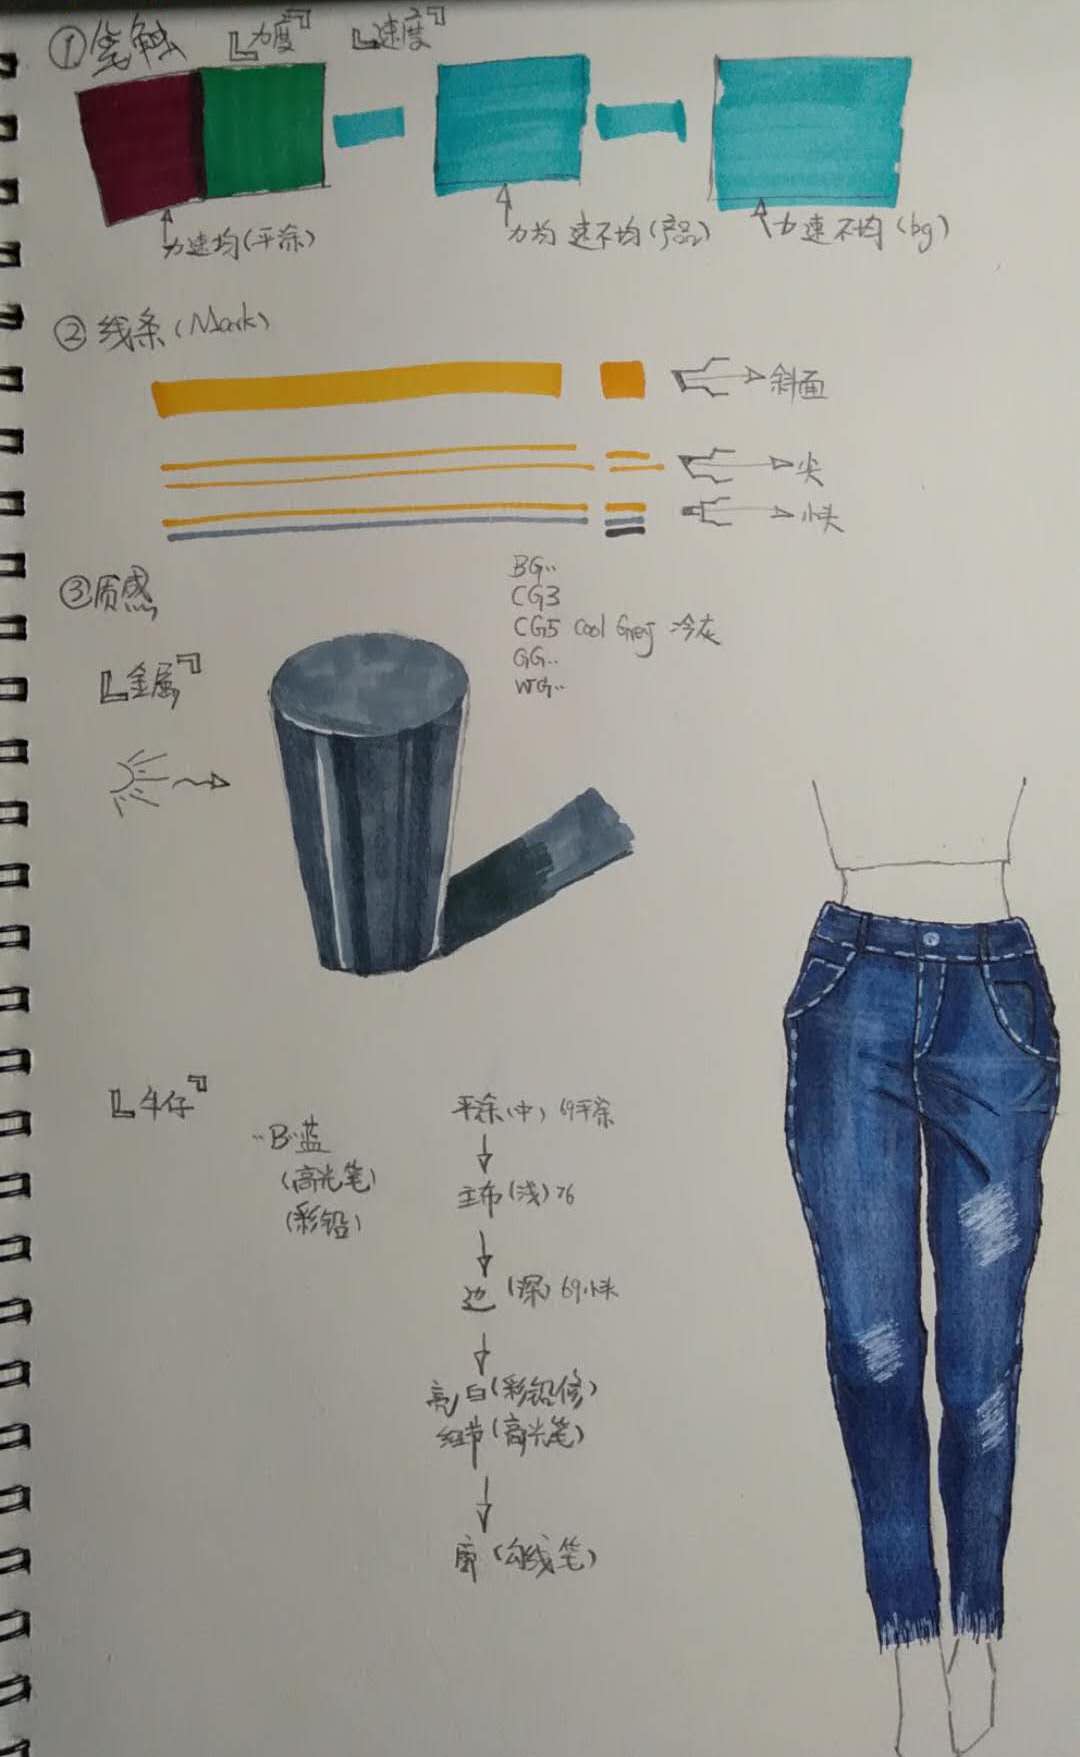 ①笔触 『力度』 『速度』
力速均(平涂)
力均 速不均(产品)
力速不均(bg)
②线条(Mark)
斜面
尖
小头
③质感
BG..
CG3
CG5 Cool Grey 冷灰
GG..
WG..
『金属』
『牛仔』
··B··蓝
(高光笔)
(彩铅)
平涂(中) 69平涂
主布(浅)76
边 (深) 69小头
亮白(彩铅修)
细节(高光笔)
廓(勾线笔)